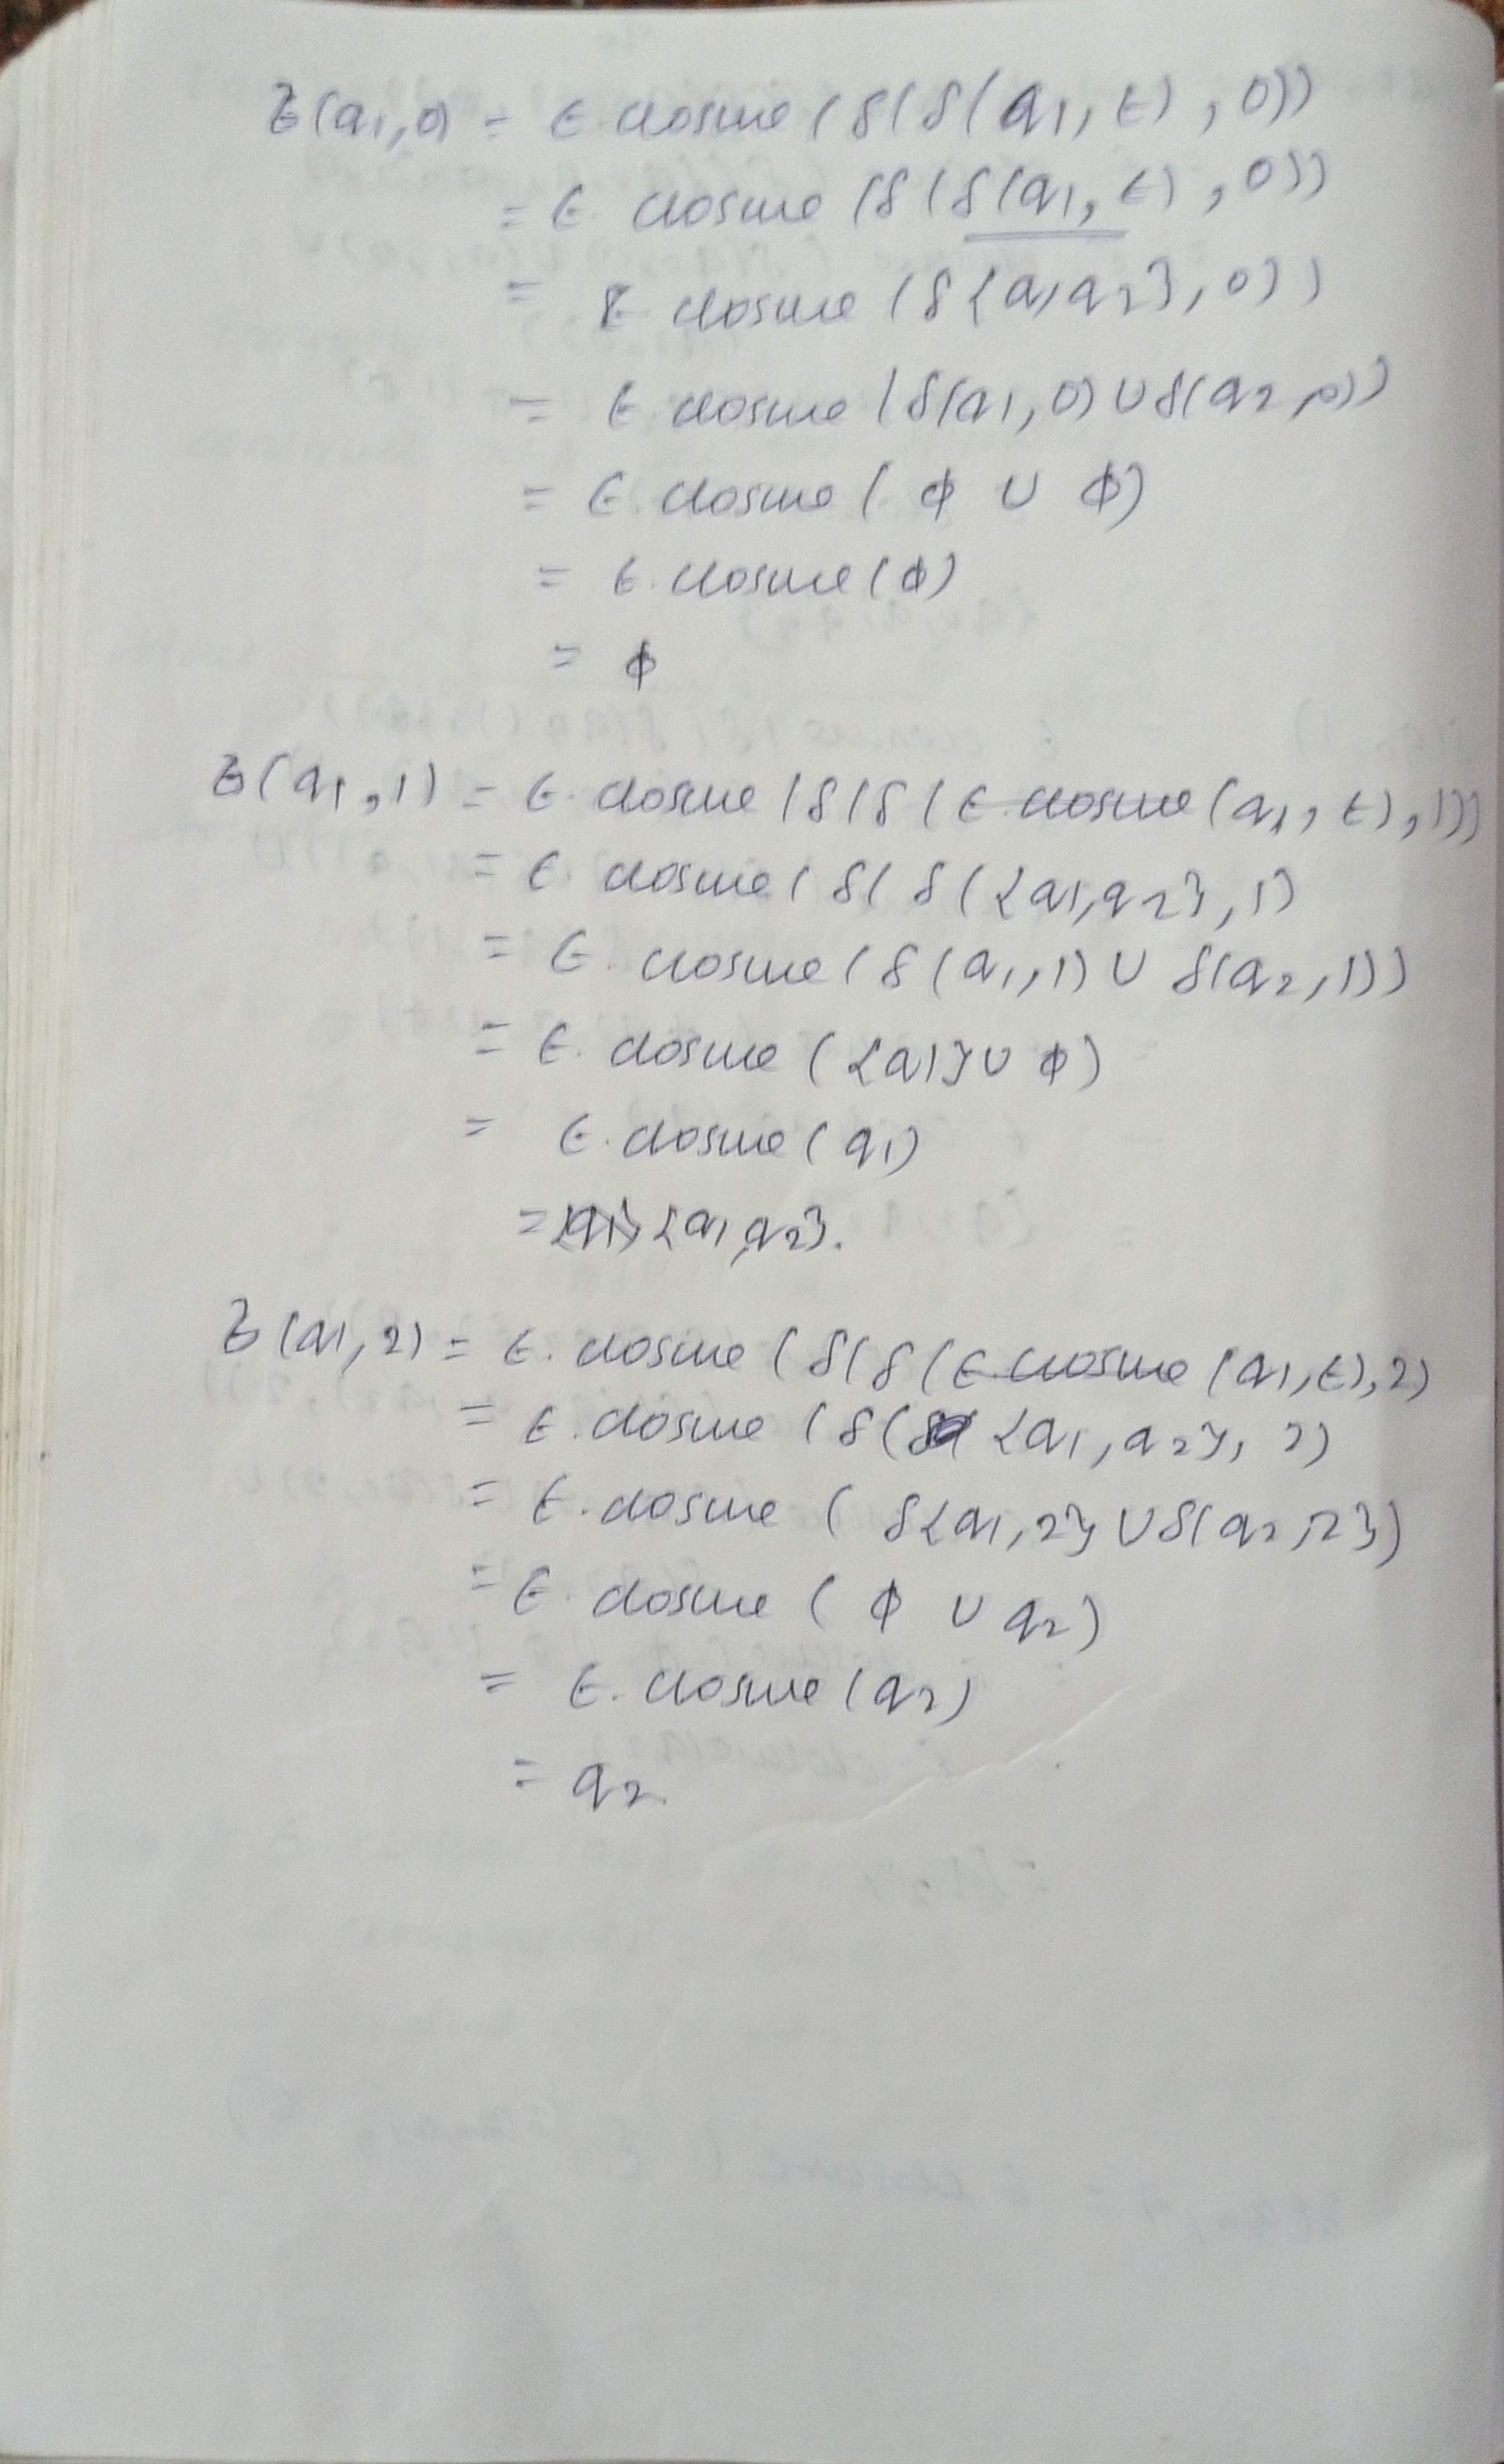 δ̂(q1,0) = ε. closure (δ(δ(q1, ε), 0))
= ε. closure (δ(δ(q1, ε), 0))
= ε closure (δ{q1q2}, 0))
= ε closure (δ(q1, 0) ∪ δ(q2, 0))
= ε. closure ( ϕ ∪ ϕ)
= ε. closure (ϕ)
= ϕ
δ̂(q1, 1) = ε. closure (δ(δ(ε closure (q1, ε), 1))
= ε. closure ( δ( δ({q1,q2}, 1)
= ε. closure (δ(q1, 1) ∪ δ(q2, 1))
= ε. closure ({q1} ∪ ϕ)
= ε. closure (q1)
= {q1} {q1,q2}.
δ̂(q1, 2) = ε. closure (δ(δ(ε closure (q1, ε), 2)
= ε. closure (δ( {q1, q2}, 2)
= ε. closure ( δ{q1, 2} ∪ δ(q2, 2})
= ε. closure ( ϕ ∪ q2)
= ε. closure (q2)
= q2.